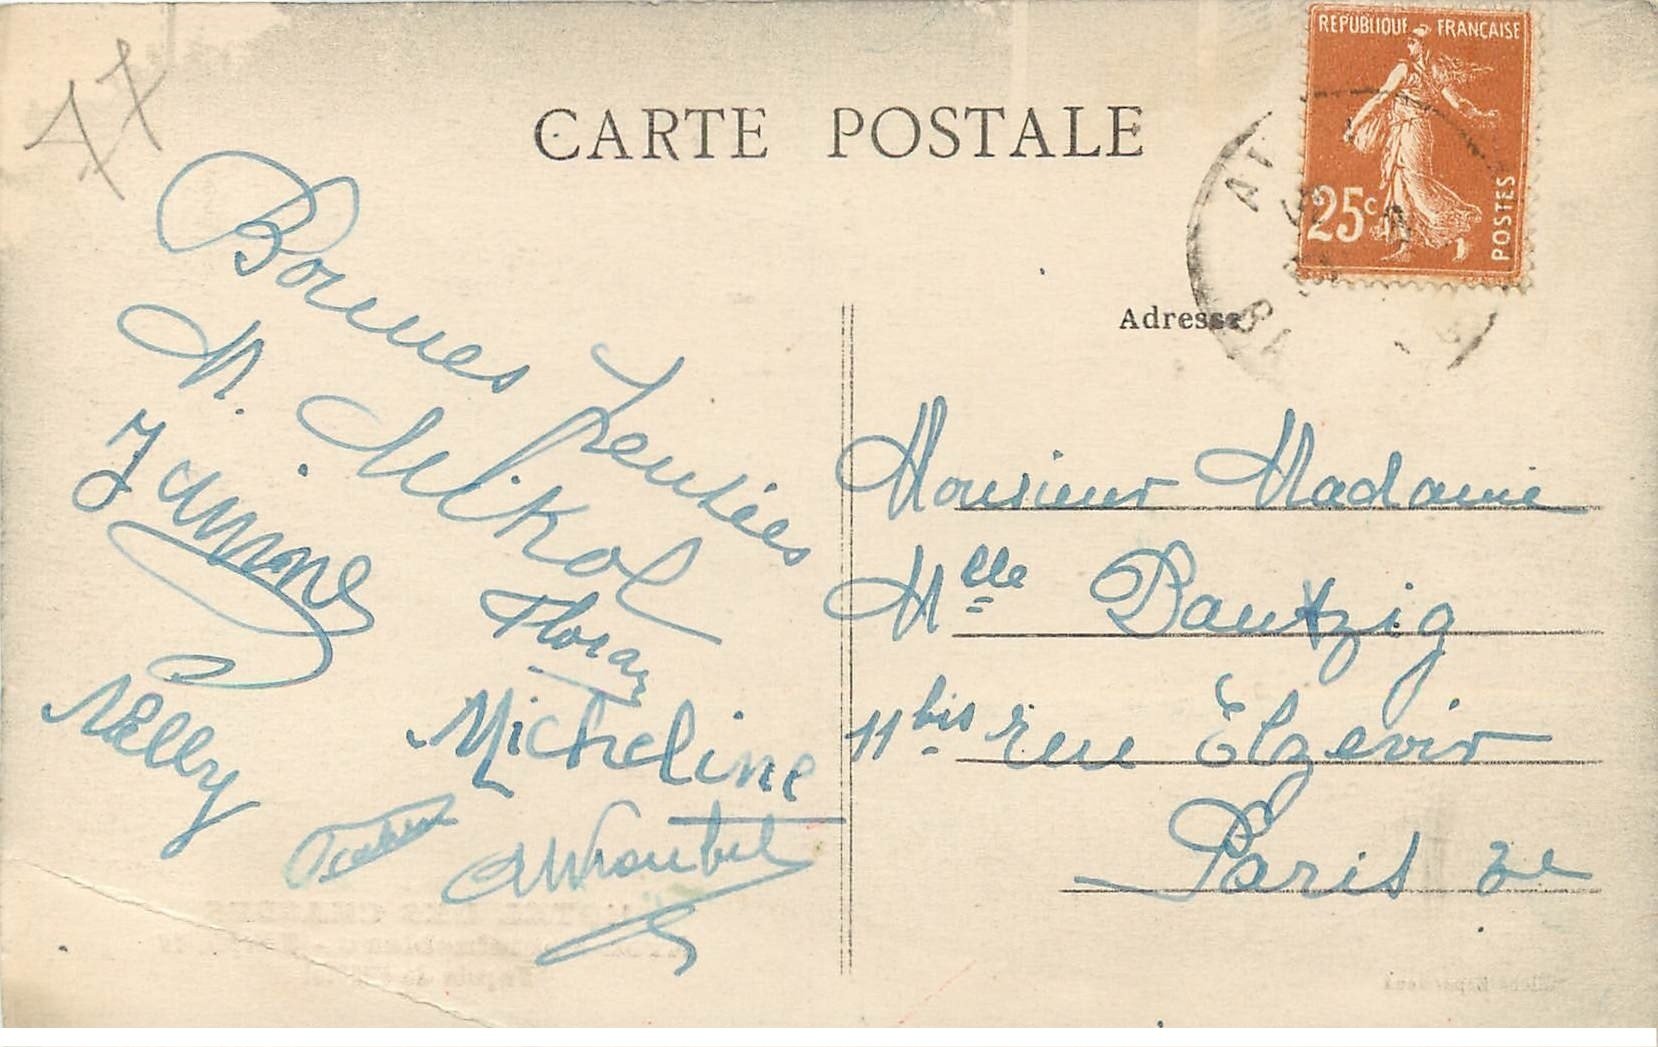 47
CARTE POSTALE
REPUBLIQUE FRANÇAISE
25c
POSTES
Bonnes Pensées
M. Mikol
Janine
Flora
Nelly
Micheline
Adresse
Monsieur Madame
Mlle Bautzig
11 bis rue Elzevir
Paris 3e